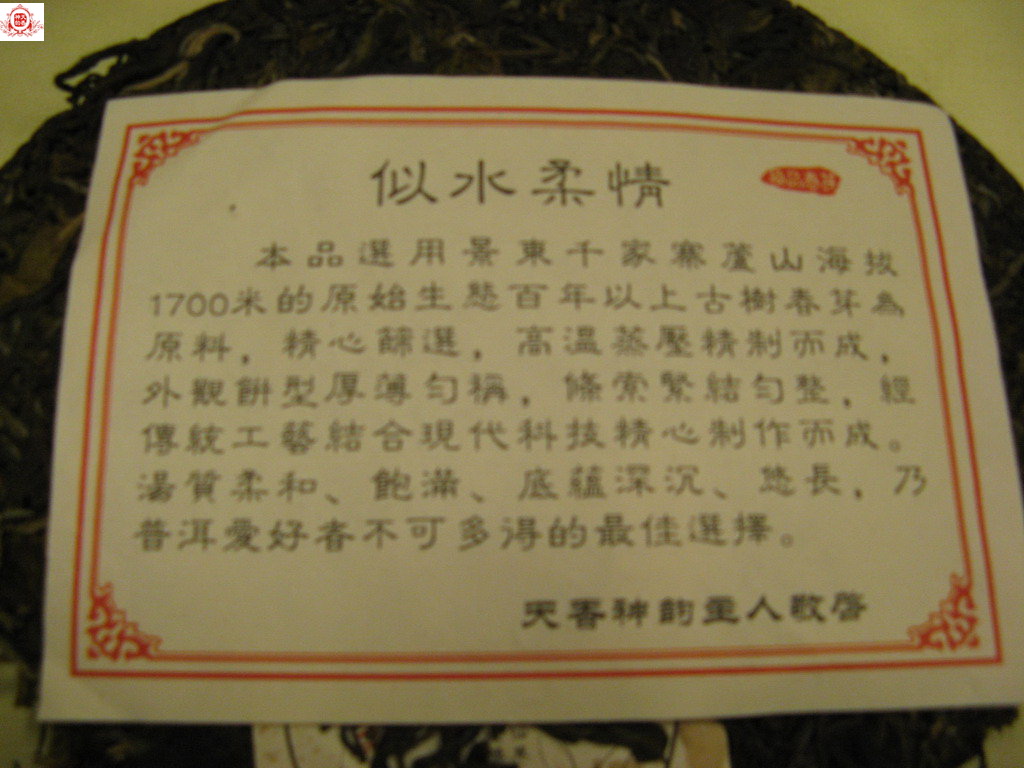 似水柔情
本品選用景東千家寨蘆山海拔
1700米的原始生態百年以上古樹春芽為
原料，精心篩選，高溫蒸壓精制而成，
外觀餅型厚薄勻稱，條索緊結勻整，經
傳統工藝結合現代科技精心制作而成。
湯質柔和、飽滿、底蘊深沉、悠長，乃
普洱愛好者不可多得的最佳選擇。
天香神韵主人敬啓